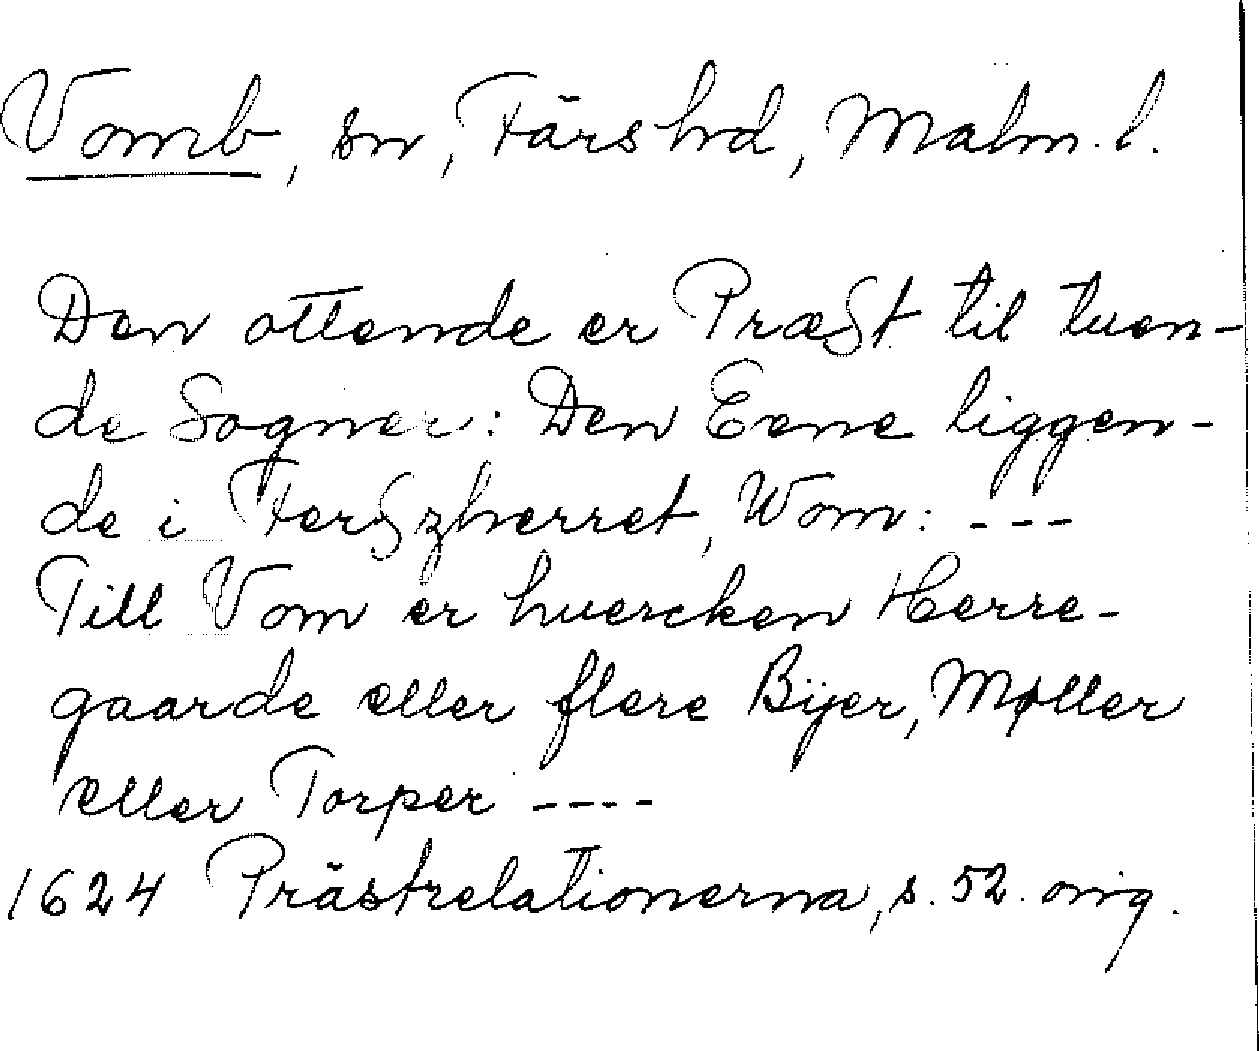 Vomb, sn, Färs hd, Malm. l.
Den ottende er Præst til tuen-
de Sogner: Den Eene liggen-
de i Ferszherret, Wom: ---
Till Vom er huercken Herre-
gaarde eller flere Byer, Møller
eller Torper ----
1624 Prästrelationerna, s. 52. orig.